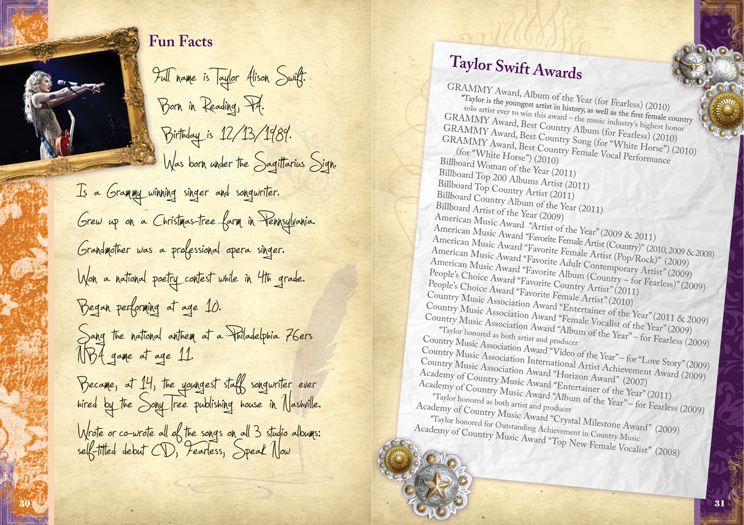 Fun Facts
Full name is Taylor Alison Swift.
Born in Reading, PA.
Birthday is 12/13/1989.
Was born under the Sagittarius Sign.
Is a Grammy winning singer and songwriter.
Grew up on a Christmas-tree farm in Pennsylvania.
Grandmother was a professional opera singer.
Won a national poetry contest while in 4th grade.
Began performing at age 10.
Sang the national anthem at a Philadelphia 76ers
NBA game at age 11.
Became, at 14, the youngest staff songwriter ever
hired by the Sony Tree publishing house in Nashville.
Wrote or co-wrote all of the songs on all 3 studio albums:
self-titled debut CD, Fearless, Speak Now
30
Taylor Swift Awards
GRAMMY Award, Album of the Year (for Fearless) (2010)
*Taylor is the youngest artist in history, as well as the first female country
solo artist ever to win this award – the music industry's highest honor
GRAMMY Award, Best Country Album (for Fearless) (2010)
GRAMMY Award, Best Country Song (for "White Horse") (2010)
GRAMMY Award, Best Country Female Vocal Performance
(for "White Horse") (2010)
Billboard Woman of the Year (2011)
Billboard Top 200 Albums Artist (2011)
Billboard Top Country Artist (2011)
Billboard Country Album of the Year (2011)
Billboard Artist of the Year (2009)
American Music Award "Artist of the Year" (2009 & 2011)
American Music Award "Favorite Female Artist (Country)" (2010, 2009 & 2008)
American Music Award "Favorite Female Artist (Pop/Rock)" (2009)
American Music Award "Favorite Adult Contemporary Artist" (2009)
American Music Award "Favorite Album (Country – for Fearless)" (2009)
People's Choice Award "Favorite Country Artist" (2011)
People's Choice Award "Favorite Female Artist" (2010)
Country Music Association Award "Entertainer of the Year" (2011 & 2009)
Country Music Association Award "Female Vocalist of the Year" (2009)
Country Music Association Award "Album of the Year" – for Fearless (2009)
*Taylor honored as both artist and producer
Country Music Association Award "Video of the Year" – for "Love Story" (2009)
Country Music Association International Artist Achievement Award (2009)
Country Music Association Award "Horizon Award" (2007)
Academy of Country Music Award "Entertainer of the Year" (2011)
Academy of Country Music Award "Album of the Year" – for Fearless (2009)
*Taylor honored as both artist and producer
Academy of Country Music Award "Crystal Milestone Award" (2009)
*Taylor honored for Outstanding Achievement in Country Music
Academy of Country Music Award "Top New Female Vocalist" (2008)
31